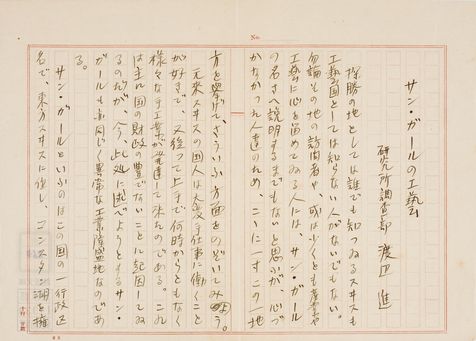 No.
サン・ガールの工藝
研究所調査部 渡辺 進
探勝の地としては誰でも知つゐるスヰスも
工藝国としては知らない人がないでもない。
勿論その地の訪問者や、或は少くとも産業や
工藝に心を留めてゐる人には、サン・ガール
の名さへ説明するまでもないと思ふが、心づ
かなかつた人達のため、こゝに一寸この一地
方を挙げて、さういふ方面をのぞいてみよう。
元来スヰスの国人は大変手仕事に働くこと
が好きで、又従つて上手で何時からともなく
様々な手工業が発達して来たのである。これ
は主に国の財政の豊でないことに起因してゐ
るのだが、今此処に述べようとするサン・
ガールも亦同じく異常な工業隆盛地なのであ
る。
サン・ガールといふのはこの国の一行政区
名で、東方スヰスに位し、コンスタンツ湖を擁